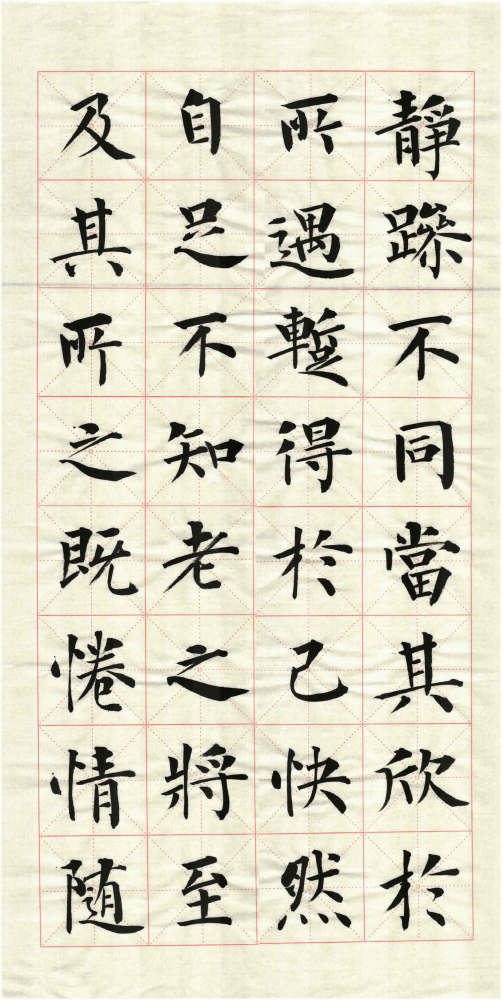 靜躁不同當其欣於
所遇蹔得於己快然
自足不知老之將至
及其所之既惓情随